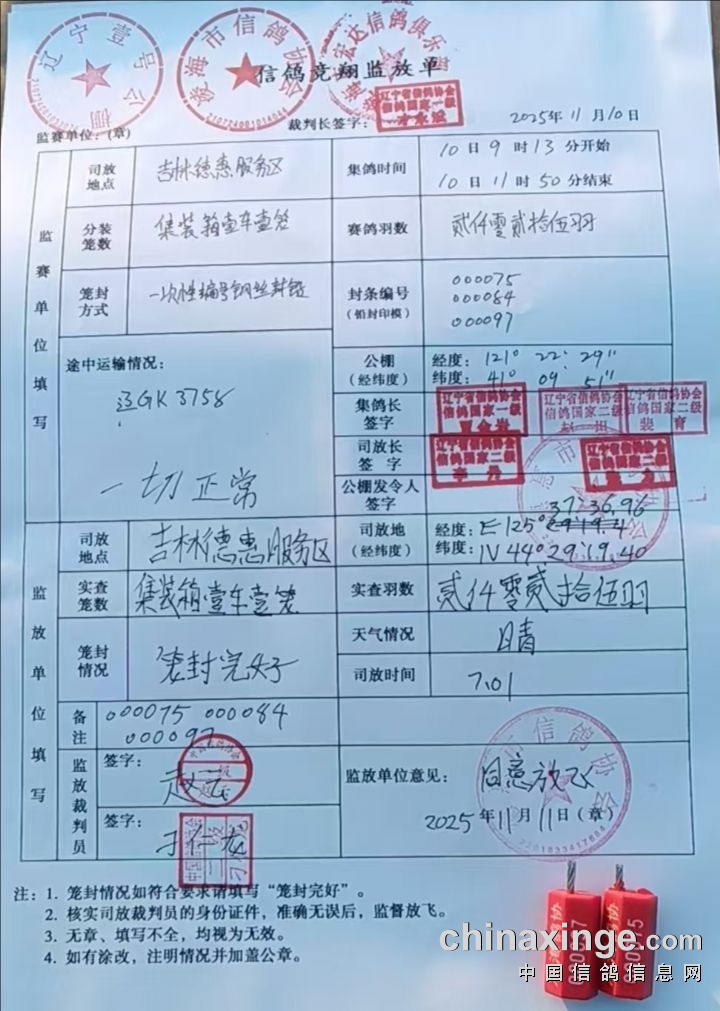 辽宁壹号公棚
凌海市信鸽协会
宏达信鸽俱乐
信鸽竞翔监放单
辽宁省信鸽协会
信鸽国家一级
监赛单位：(章)
裁判长签字：
2025年11月10日
监赛单位填写
司放地点
吉林德惠服务区
集鸽时间
10日9时13分开始
10日11时50分结束
分装笼数
集装箱壹车壹笼
赛鸽羽数
贰仟零贰拾伍羽
笼封方式
一次性编号钢丝封铅
封条编号
(铅封印模)
000075
000084
000097
途中运输情况：
辽GK3758
一切正常
公棚
(经纬度)
经度：121° 22′ 29″
纬度：41° 09′ 51″
集鸽长签字
辽宁省信鸽协会
信鸽国家一级
辽宁省信鸽协会
信鸽国家二级
辽宁省信鸽协会
信鸽国家二级
裴育
司放长签字
辽宁省信鸽协会
信鸽国家二级
辽宁省信鸽协会
信鸽国家二级
公棚发令人签字
监放单位填写
司放地点
吉林德惠服务区
司放地
(经纬度)
37:36.96
经度：E125°
纬度：N44°29:19.40
实查笼数
集装箱壹车壹笼
实查羽数
贰仟零贰拾伍羽
笼封情况
笼封完好
天气情况
晴
司放时间
7.01
备注
000075 000084
000097
监放裁判员
签字：
赵云
签字：
刁仁龙
监放单位意见：
同意放飞
2025年11月11日(章)
信鸽协会
2201833417684
注：1. 笼封情况如符合要求请填写“笼封完好”。
2. 核实司放裁判员的身份证件，准确无误后，监督放飞。
3. 无章、填写不全，均视为无效。
4. 如有涂改，注明情况并加盖公章。
chinaxinge.com
中国信鸽信息网